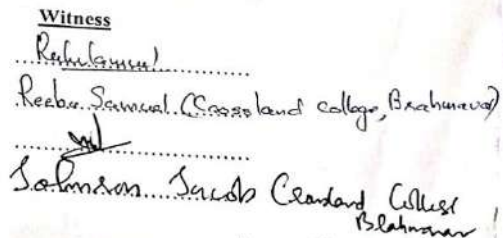 Witness
Reebu Samual (Crossland college, Brahmavar)
Johnson Jacob Crossland College
Brahmavar